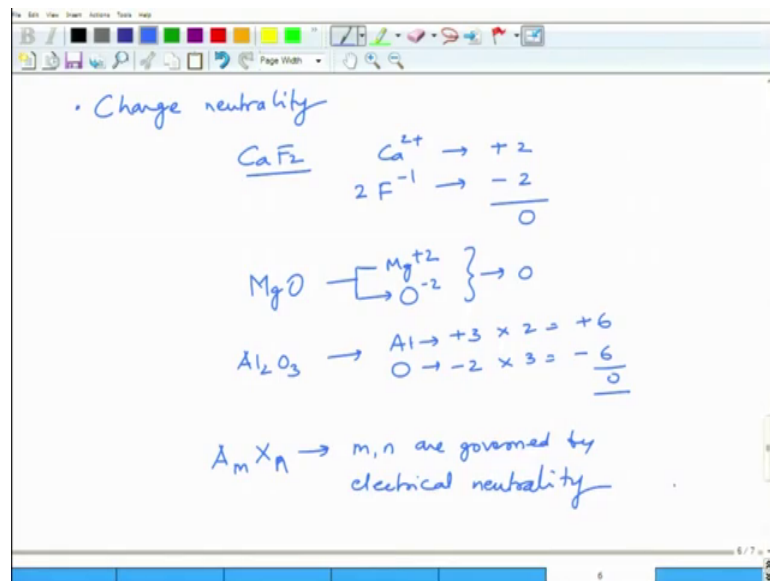 File Edit View Insert Actions Tools Help
B I
Page Width
• Change neutrality
CaF2 Ca2+ → +2
2 F-1 → -2
0
MgO Mg+2
O-2 } → 0
Al2O3 → Al → +3 × 2 = +6
O → -2 × 3 = -6
0
AmXn → m, n are governed by
electrical neutrality
6/7
6